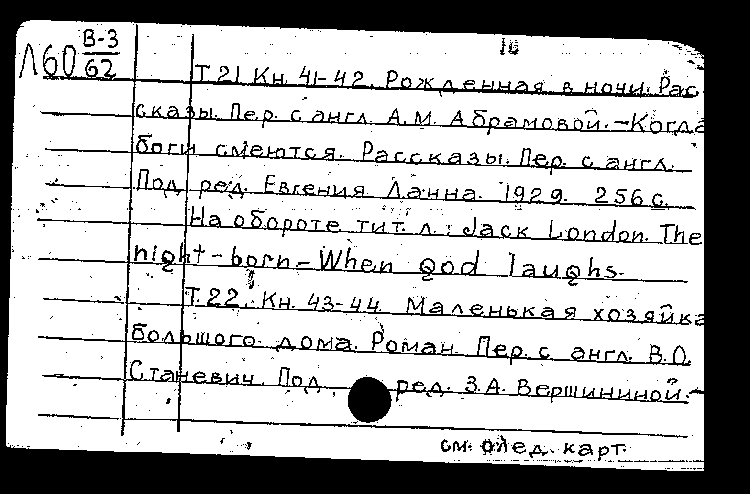 Л60 В-3
62
10
Т. 21 Кн. 41-42. Рожденная в ночи. Рас-
сказы. Пер. с англ. А.М. Абрамовой. – Когда
боги смеются. Рассказы. Пер. с англ.
Под ред. Евгения Ланна. 1929. 256 с.
На обороте тит. л.: Jack London. The
night-born. – When god laughs.
Т. 22. Кн. 43-44. Маленькая хозяйка
большого дома. Роман. Пер. с англ. В.О.
Станевич. Под ред. З.А. Вершининой. –
см. след. карт.